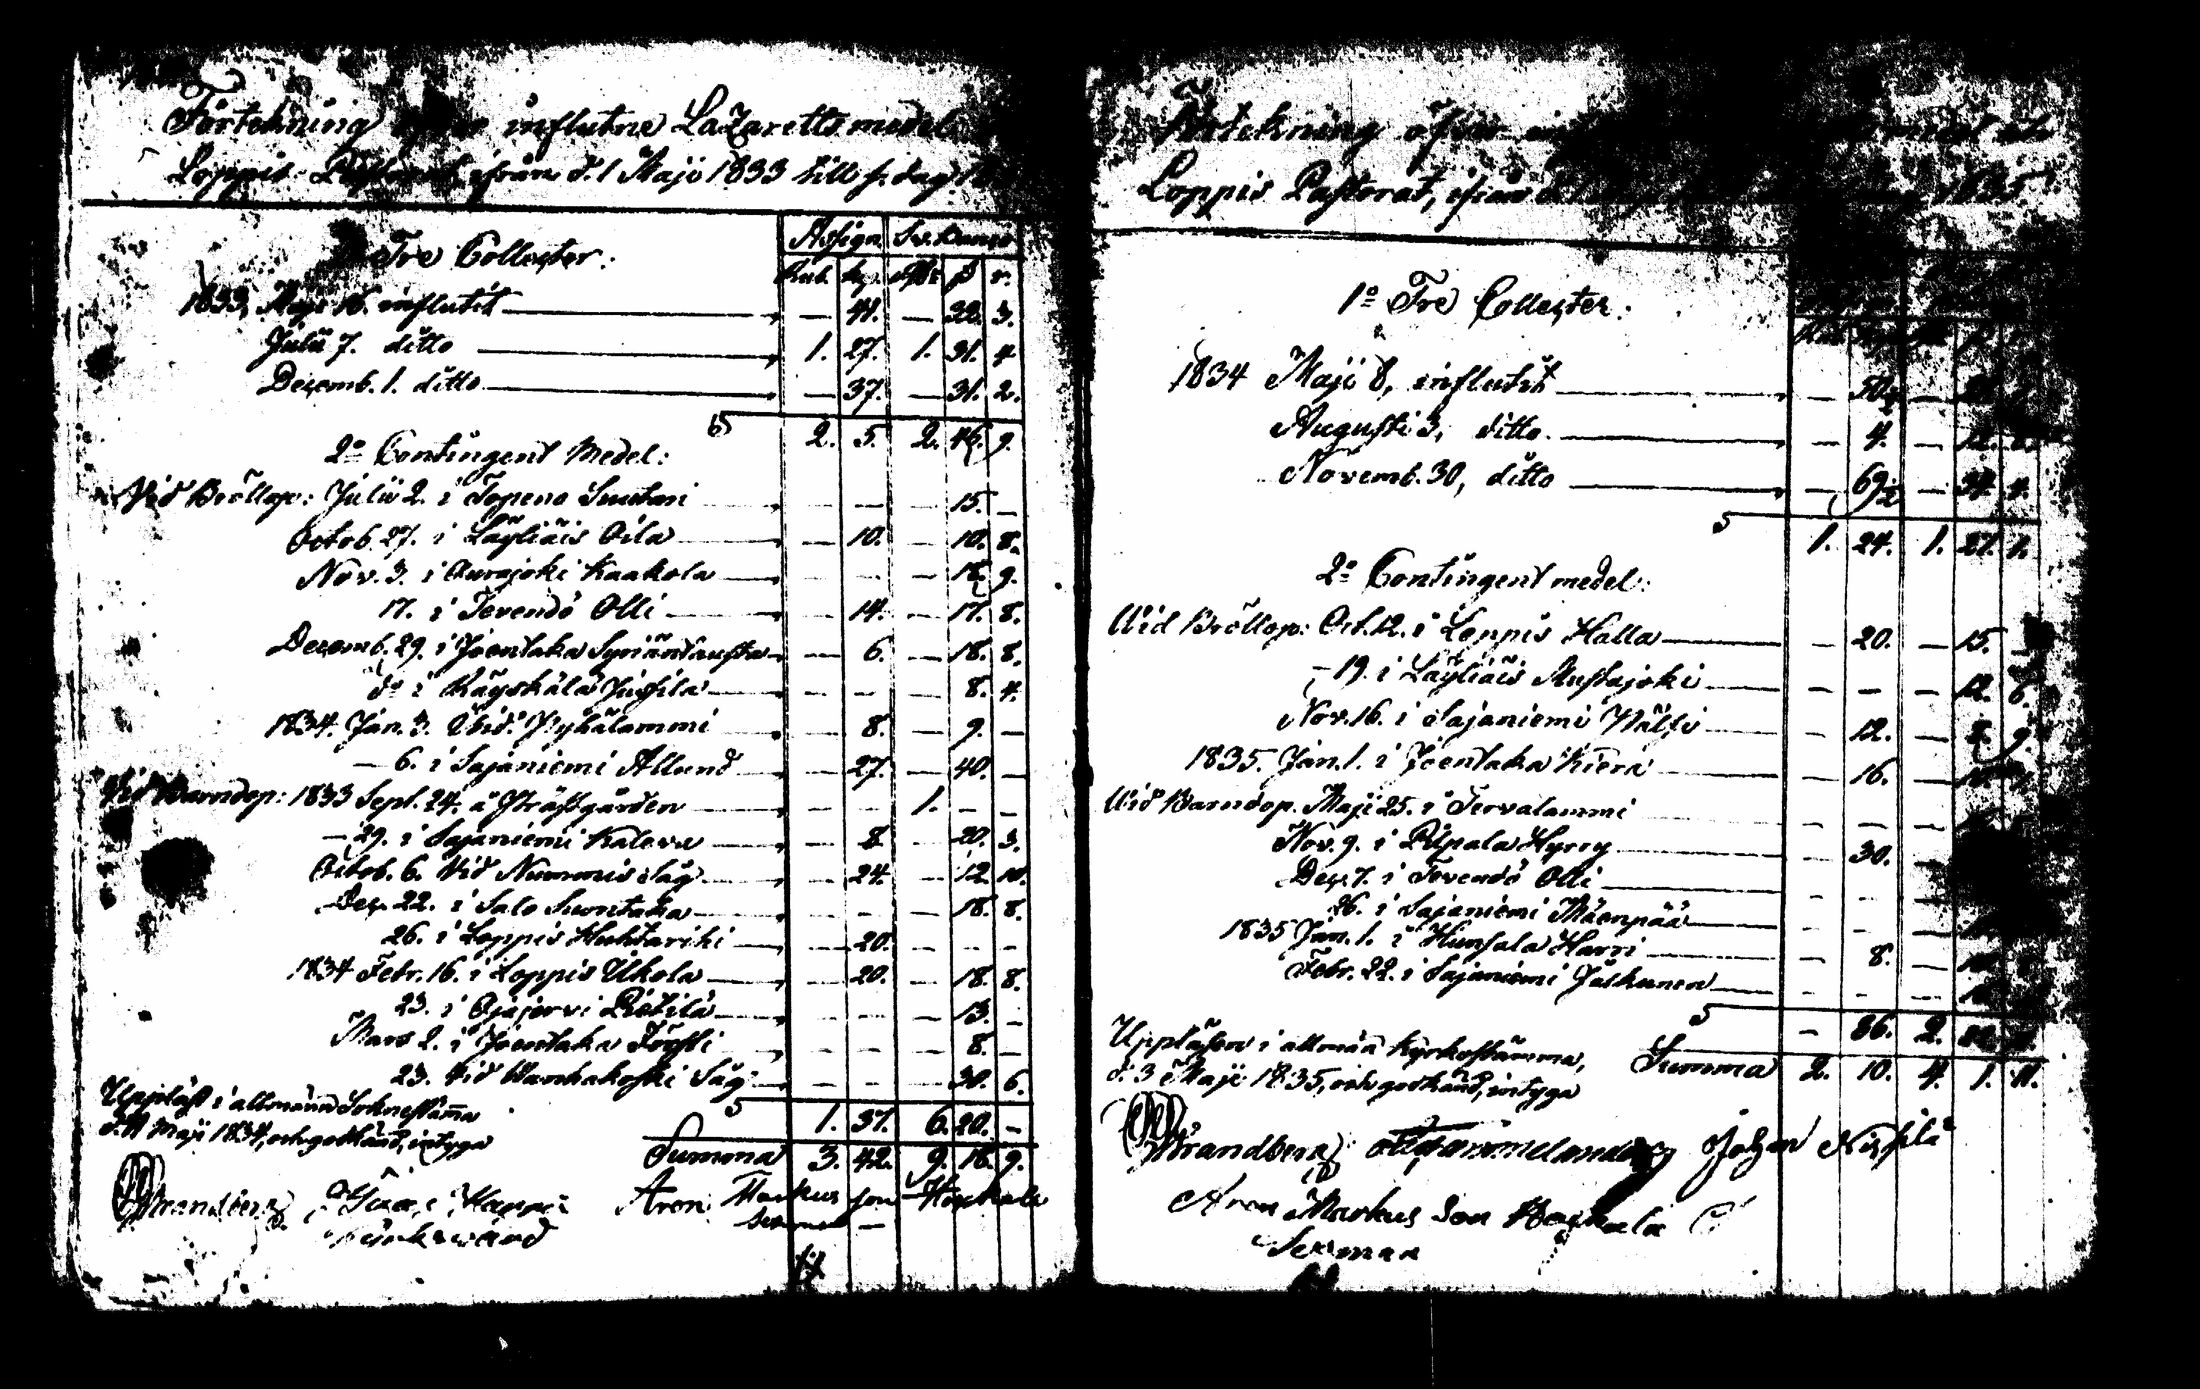 Förtekning öfver influtne Lazaretts medel
Loppis Pastorat, ifrån d. 1 Maji 1833 till s. dag
Assign. Sv. Banco
Tre Collecter:
Rub. kop. Rdr s r.
1833, Maji 16. influtit — 41. — 32. 3.
Julii 7. ditto 1. 27. 1. 31. 4
Decemb. 1. ditto — 37. — 31. 2.
S 2. 5. 2. 46. 9.
2:o Contingent Medel:
Vid Bröllop: Julii 2. i Topeno Suutari — — — 15. —
Octob. 27. i Läyliäis Oila — 10. — 10. 8.
Nov. 3. i Ourajoki Kaakola — — — 18. 9.
17. i Tevendö Olli — 14. — 17. 8.
Decemb. 29. i Joentaka Syriäntausta — 6. — 18. 8.
d:o i Räyskälä Jussila — — — 8. 4.
1834. Jan. 3. Vid Pyhälammi — 8. — 9. —
— 6. i Sajaniemi Allund — 27. — 40. —
Vid Barndop: 1833 Sept. 24. å Prästgården — — 1. — —
— 29. i Sajaniemi Kaleva — 8. — 20. 3.
Octob. 6. Vid Nummis såg — 24. — 12. 10.
Dec. 22. i Salo Suontaka — — — 18. 8.
26. i Loppis Huhtarihi — 20. — — —
1834 Febr. 16. i Loppis Ukola — 20. — 18. 8.
23. i Ojajervi Pietilä — — — 13. —
Mars 2. i Joentaka Törfti — — — 8. —
23. Vid Wanhakoski Såg — — — 30. 6.
S 1. 37. 6. 20. —
Uppläst i allmänn Sockne stämma
d. 11 Maji 1834, och godkänd, intyga
Summa 3. 42. 9. 16. 9.
Strandberg
Aron Markus son
Förtekning öfver medel
Loppis Pastorat, ifrån 1835.
1:o Tre Collecter:
1834 Maji 8, influtit — 50 1/2 —
Augusti 3, ditto — 4. — 12.
Novemb. 30, ditto — 69 1/2 — 34. 4.
S 1. 24. 1. 27. 1.
2:o Contingent medel:
Vid Bröllop: Oct. 12. i Loppis Halla — 20. — 15. —
— 19. i Läyliäis Mustajoki — — — 12. 6.
Nov. 16. i Sajaniemi Wälfi — 12. — 9.
1835. Jan. 1. i Joentaka Kiera — 16. —
Vid Barndop. Maji 25. i Tervalammi — — —
Nov. 9. i Pilpala Hyrry — 30. —
Dec. 7. i Tevendö Olli — —
26. i Sajaniemi Mäenpää — — —
1835 Jan. 1. i Hunsala Harri — 8. —
Febr. 22. i Sajaniemi Jälkunen — — —
S — 86. 2.
Uppläsen i allmän kyrkostämma,
Summa 2. 10. 4. 1. 11.
d. 3 Maji 1835, och godkänd, intyga
Strandberg Johan
Aron Markus Son